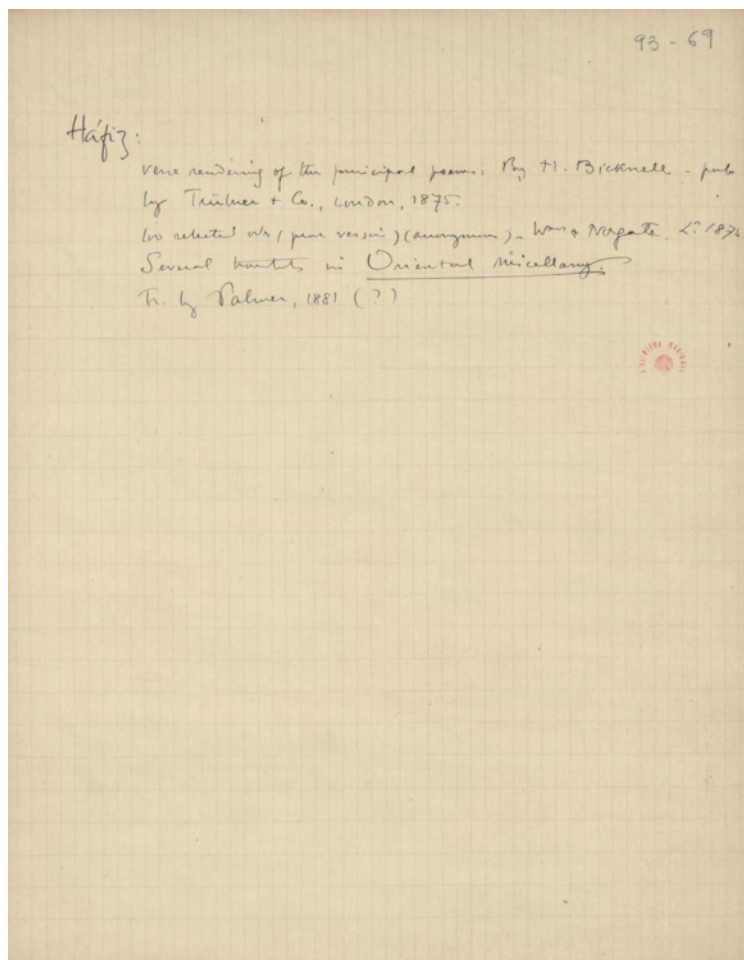 93-69
Háfiz:
verse rendering of the principal poems. By H. Bicknell - pub
by Trübner & Co., London, 1875.
selected odes (prose version) (anonymous) - Wms & Norgate. Lº 1875
Several translated in Oriental Miscellany.
Tr. by Palmer, 1881 (?)